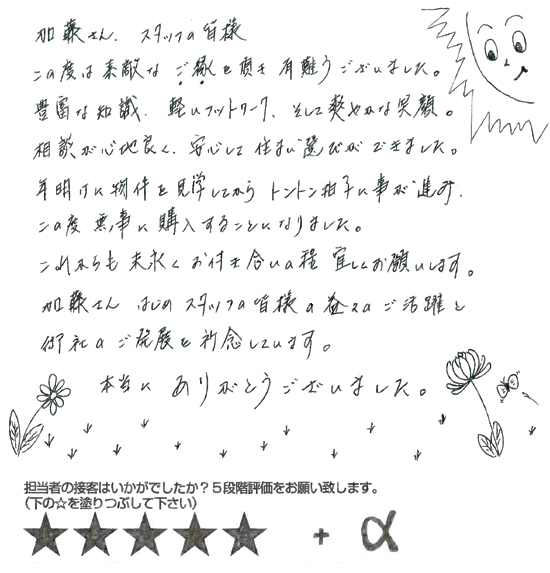 加藤さん、スタッフの皆様
この度は素敵な ご縁を頂き 有難うございました。
豊富な知識、軽いフットワーク、そして爽やかな笑顔。
相談が心地良く、安心して 住まい選びが できました。
年明けに物件を見学してから トントン拍子に事が進み、
この度 無事に購入することになりました。
これからも 末永くお付き合いの程 宜しくお願いします。
加藤さん はじめ スタッフの皆様の益々のご活躍と
御社のご発展を祈念しています。
本当に ありがとうございました。
担当者の接客はいかがでしたか？５段階評価をお願い致します。
（下の☆を塗りつぶして下さい）
★★★★★ + α